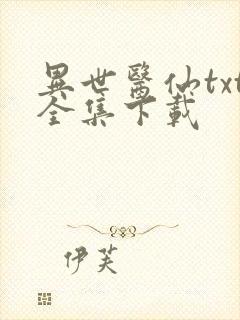 異世醫仙txt
全集下載
伊芙